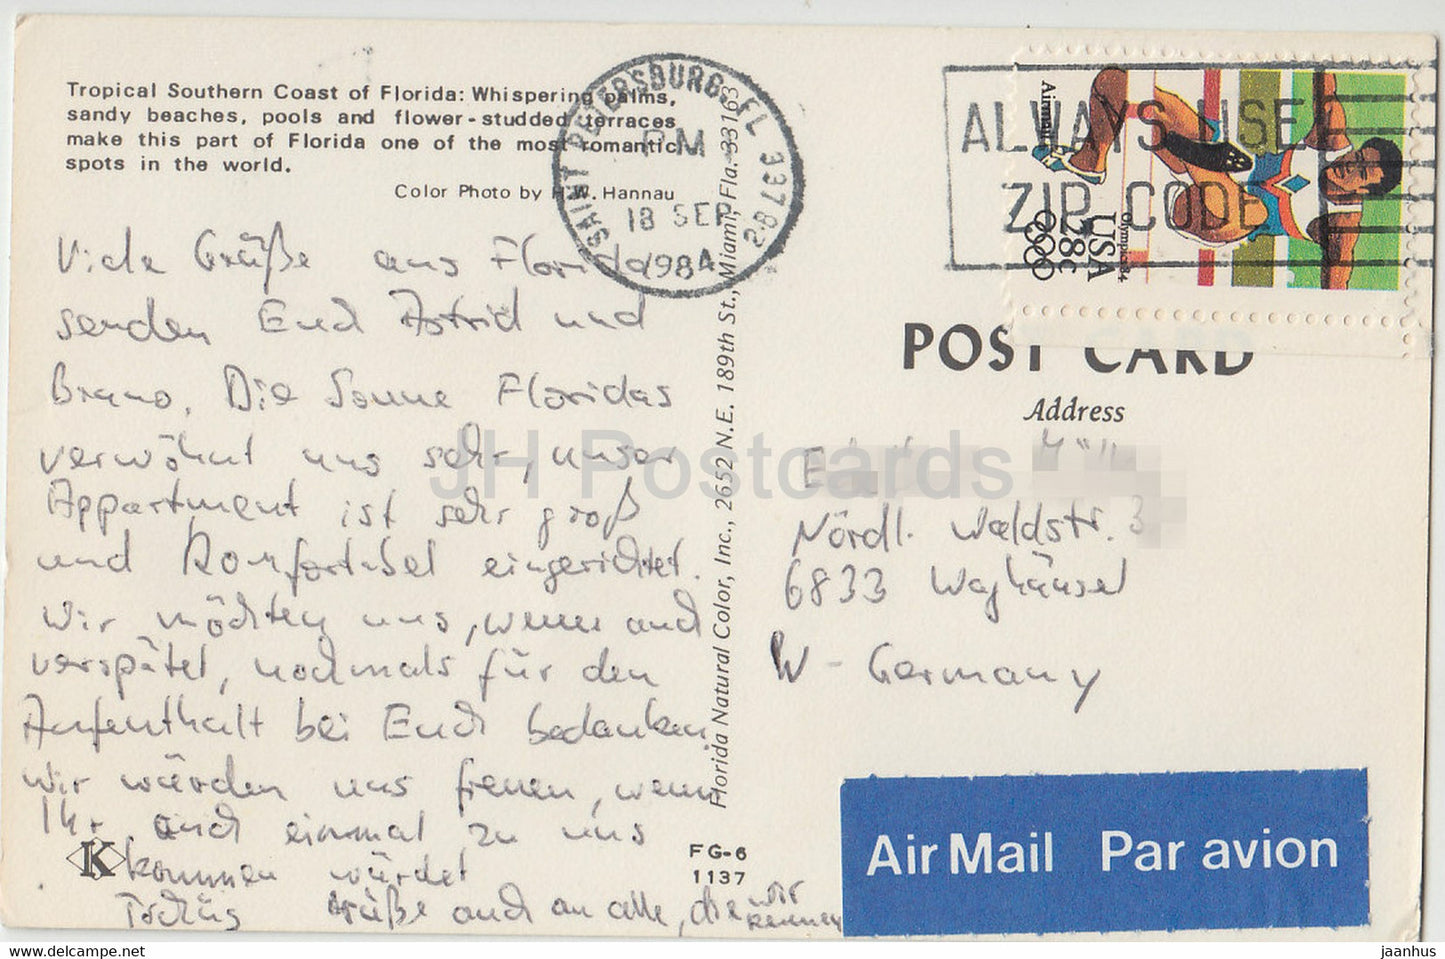 Tropical Southern Coast of Florida: Whispering palms,
sandy beaches, pools and flower-studded terraces
make this part of Florida one of the most romantic
spots in the world.
Color Photo by H.W. Hannau
Viele Grüße aus Florida
senden Euch Astrid und
Bruno. Die Sonne Floridas
verwöhnt uns sehr, unser
Appartment ist sehr groß
und komfortabel eingerichtet.
Wir möchten uns, wenn auch
verspätet, nochmals für den
Aufenthalt bei Euch bedanken.
Wir würden uns freuen, wenn
Ihr auch einmal zu uns
kommen würdet
Tschüs Grüße auch an alle, die wir
kennen
K
FG-6
1137
Florida Natural Color, Inc., 2652 N.E. 189th St., Miami, Fla. 33163
SAINT PETERSBURG, FL 337 8-2
PM
18 SEP
1984
ALWAYS USE
ZIP CODE
Airmail
Olympics 84
USA
28c
POST CARD
Address
Nördl. Waldstr. 3
6833 Waghäusel
W-Germany
Air Mail Par avion
JH Postcards
https://www.delcampe.net
jaanhus